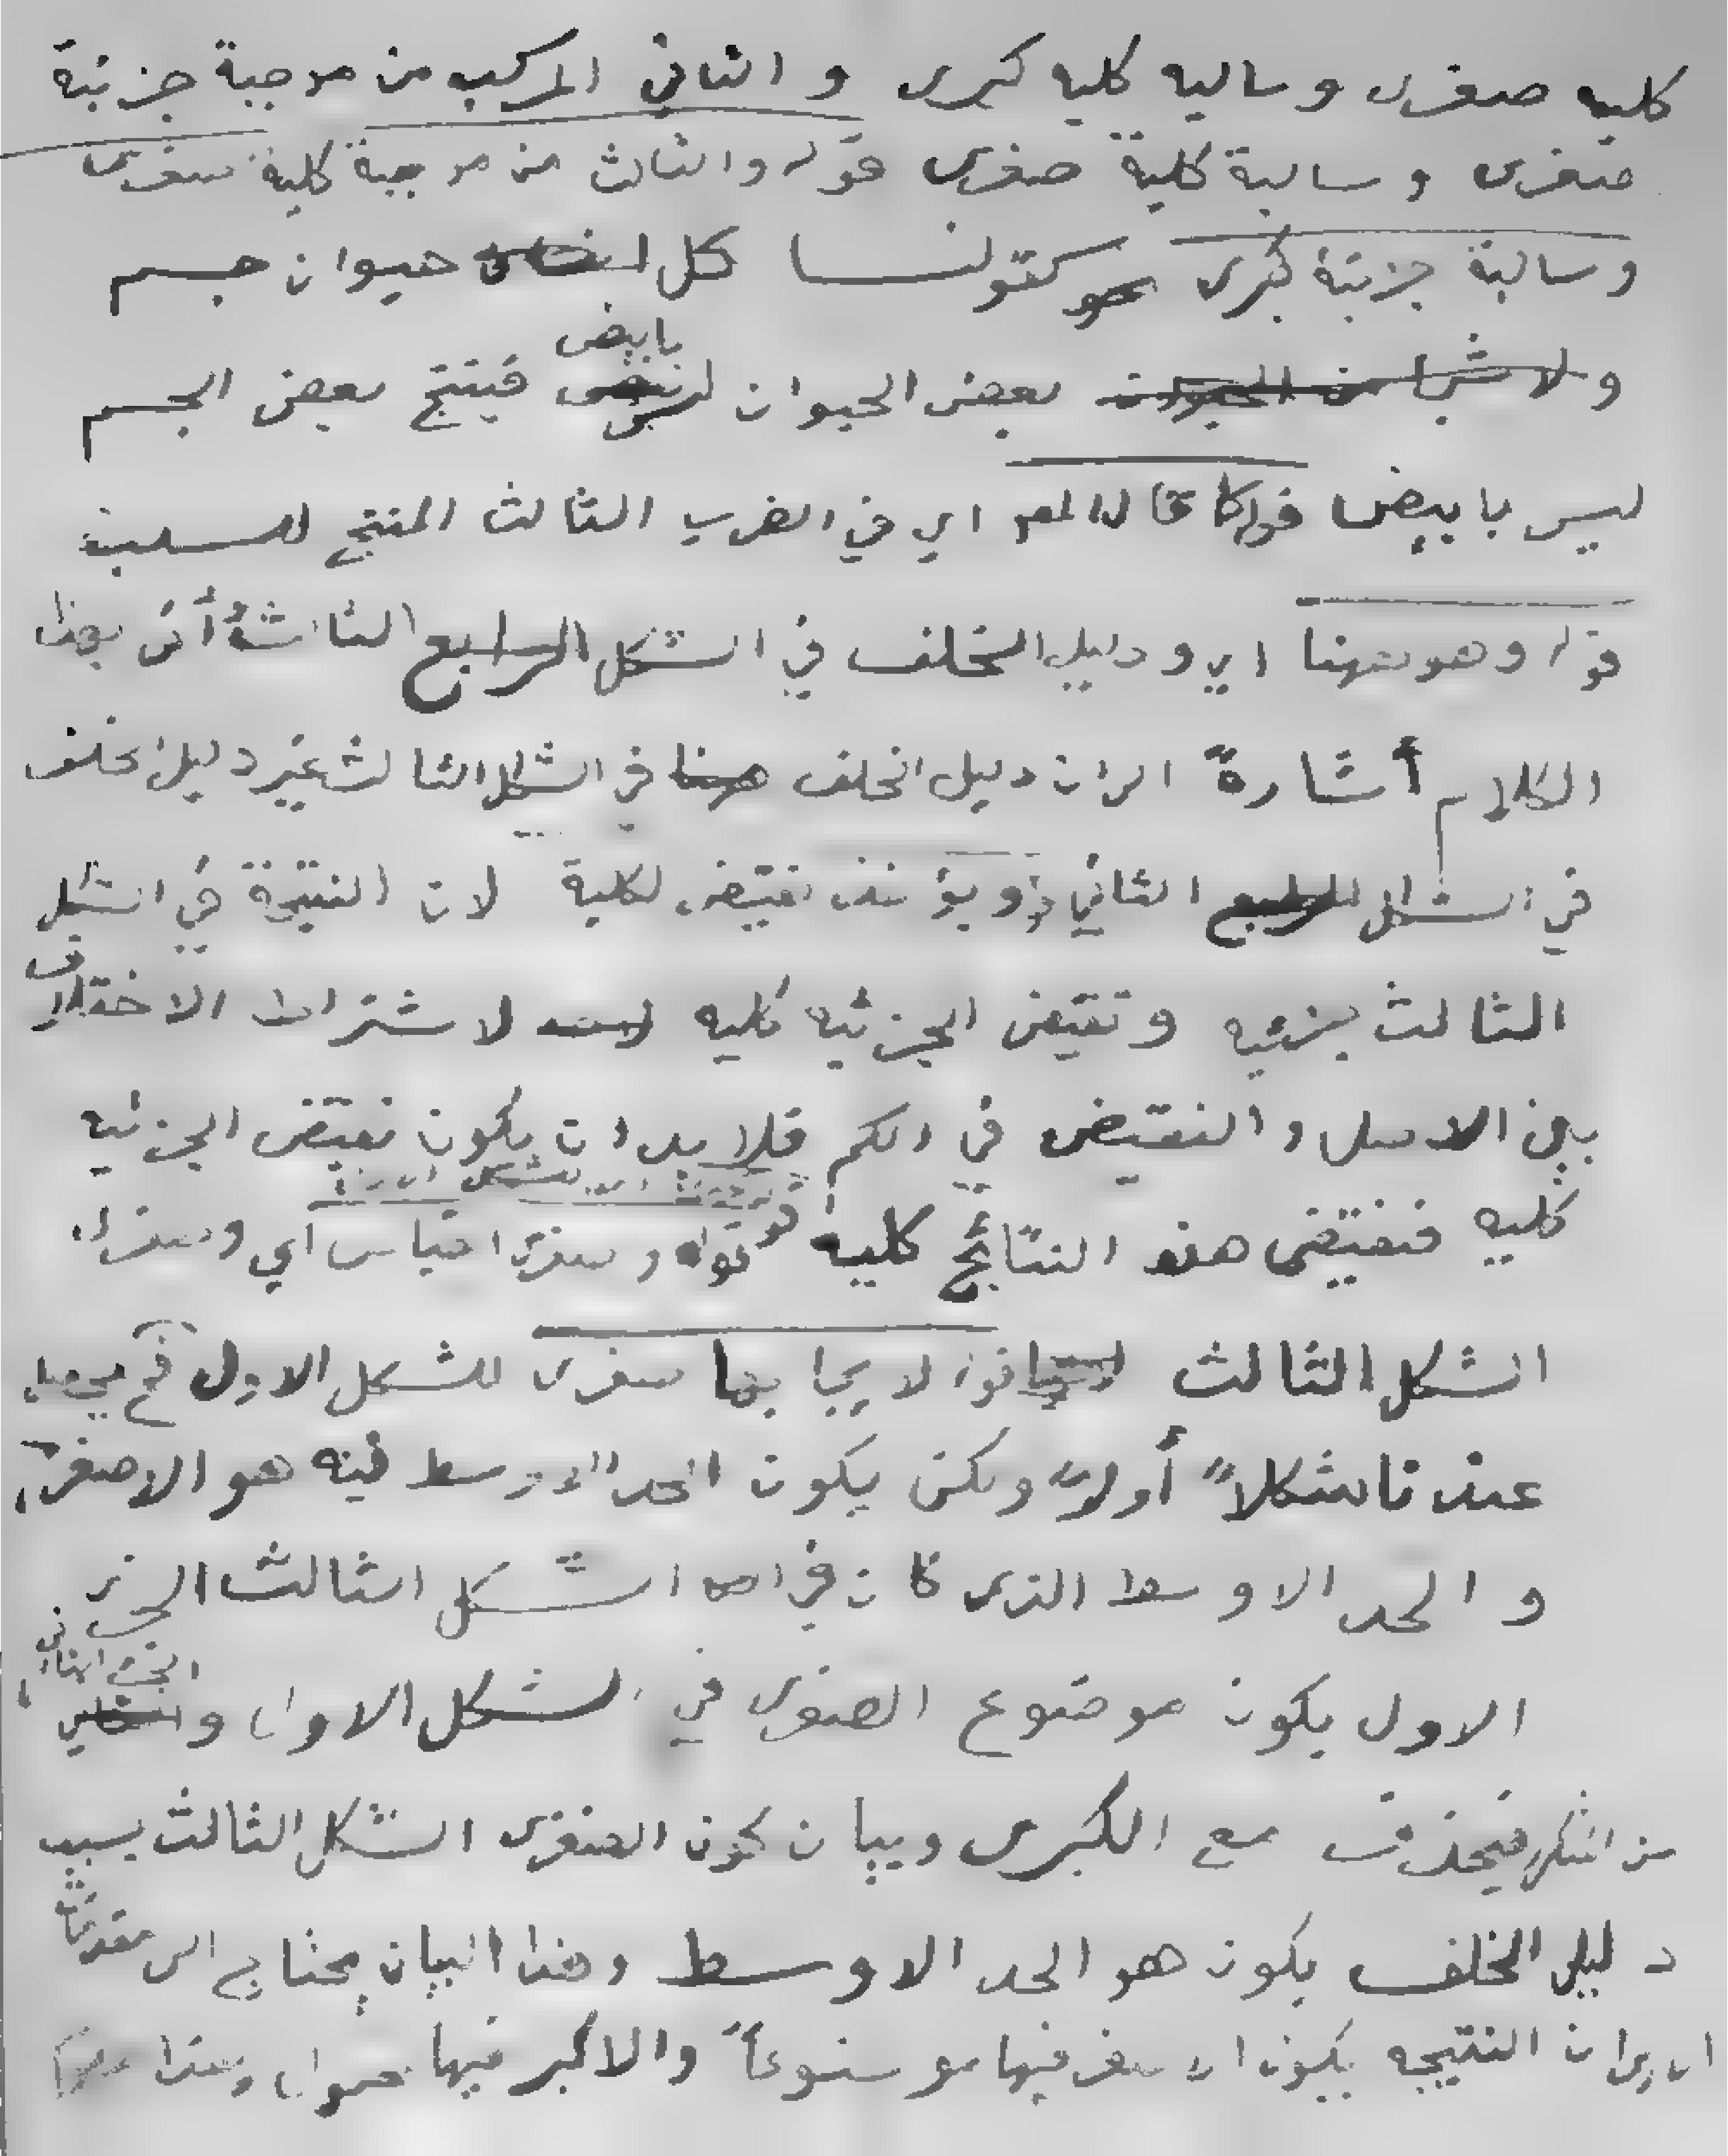 كليه صغرى وساليه كليه كبرى والثاني المركب من موجبة جزئية
صغرى وسالبة كلية صغرى قوله والثالث من موجبة كلية صغرى
وسالبة جزئية كبرى كقولنا كل حيوان جسم
و بعض الحيوان ليس بابيض فينتج بعض الجسم
ليس بابيض قوله كما قاله المص اي في الضرب الثالث المنتج للسلب
قوله وهو ههنا اي ودليل الخلف في الشكل الثالث أتى بهذا
الكلام أشارةً الى ان دليل الخلف في الشكل الثالث غير دليل الخلف
في الشكل الثاني قوله يؤخذ نقيض لكلية لان النتيجة في الشكل
الثالث جزئيه ونقيض الجزئيه كليه لاشتراط الاختلاف
بين الاصل والنقيض في الكم فلا بد ان يكون نقيض الجزئيه
كليه فنقيض هذه النتائج كليه قوله وصغرى القياس اي وصغرى
الشكل الثالث قوله لايجابها صغرى للشكل الاول فح يحصل
عندنا شكلاً أولاً ولكن يكون الحد الاوسط فيه هو الاصغر
والحد الاوسط الذي كان في الشكل الثالث الجزء
الاول يكون موضوع الصغرى في الشكل الاول والجزء الثاني
من المتكرر فيحذف مع الكبرى وبيان كون الصغرى الشكل الثالث بسبب
دليل الخلف يكون هو الحد الاوسط وهذا البيان يحتاج الى مقدمات
الاولى ان النتيجه يكون الاصغر فيها موضوعاً والاكبر فيها محمولا وهذا